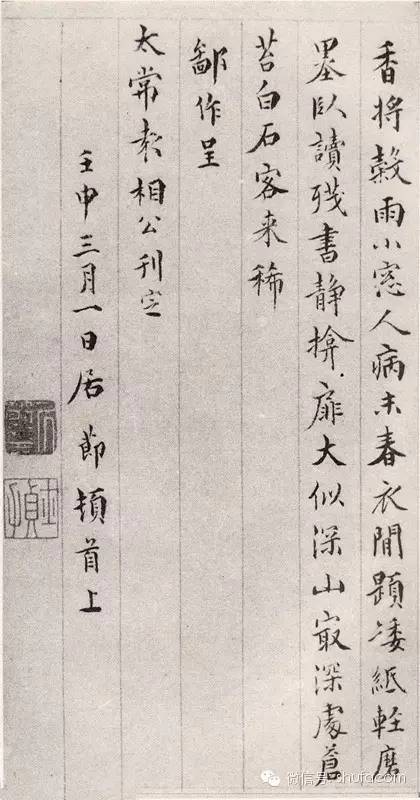 香將穀雨小窓人病未春衣閒題凄紙軽磨
墨臥讀殘書静揜扉大似深山㝡深處蒼
苔白石客来稀
鄙作呈
太常袁相公刊定
壬申三月一日居節頓首上
士貞
微信号